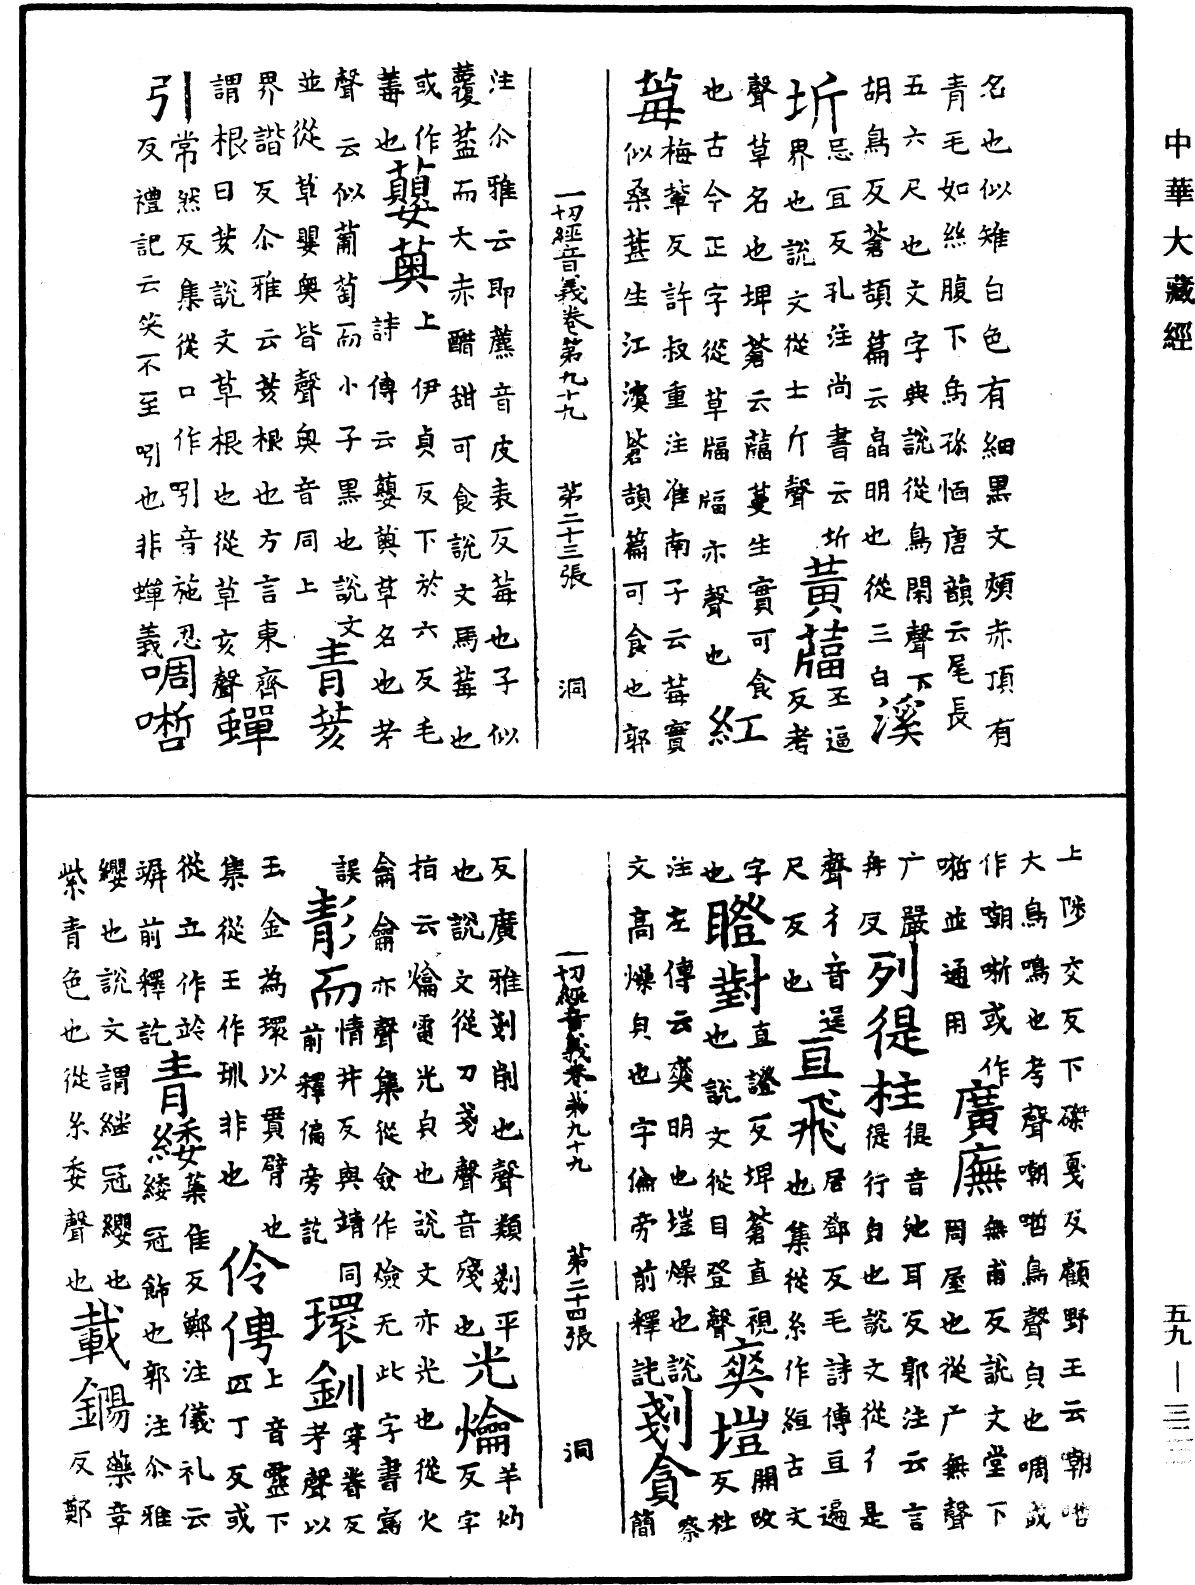 中華大藏經
名也似雉白色有細黑文頰赤頂有
青毛如絲腹下烏孫愐唐韻云尾長
五六尺也文字典說從鳥閑聲下溪
胡鳥反蒼頡篇云皛明也從三白
坼忌宜反孔注尚書云圻
界也說文從士斤聲黃䔰丕逼反考
聲草名也埤蒼云䔰蔓生實可食
也古今正字從草畐畐亦聲也紅
莓梅軰反許叔重注淮南子云莓實
似桑葚生江濱蒼頡篇可食也郭
一切經音義卷第九十九 第二十三張 洞
注尒雅云即藨音皮表反莓也子似
蘡葢而大赤醋甜可食說文馬莓也
或作䓯也蘡薁上伊貞反下於六反毛
詩傳云蘡薁草名也考
聲云似葡萄而小子黑也說文
並從草嬰奧皆聲奧音同上青荄
界諧反尒雅云荄根也方言東齊
謂根曰荄說文草根也從草亥聲蟬
引常然反集從口作吲音施忍
反禮記云笑不至吲也非蟬義啁哳
上陟交反下磔戛反顧野王云嘲哳
大鳥鳴也考聲嘲哳鳥聲皃也啁或
作嘲哳或作
哳並通用廣廡無甫反說文堂下
周屋也從广無聲
广嚴列徥柱徥音池耳反郭注云言
冉反徥行皃也說文從彳是
聲彳音逞亘飛居鄧反毛詩傳亘遍
尺反也也集從糸作絙古文
字瞪對直證反埤蒼直視
也也說文從目登聲爽塏開改反杜
注左傳云爽明也塏燥也說剗貪察
文高燥皃也字倫旁前釋訖簡
一切經音義卷第九十九 第二十四張 洞
反廣雅剗削也聲類剗平光爚羊灼
也說文從刀戔聲音殘也反字
指云爚電光皃也說文亦光也從火
龠龠亦聲集從僉作燄无此字書寫
誤彰而情井反與靖同環釧穿眷反
前釋偏旁訖考聲以
玉金為環以貫臂也伶俜上音靈下
集從王作玔非也匹丁反或
從立作竛青緌蘂隹反鄭注儀礼云
竮前釋訖緌冠飾也郭注尒雅
纓也說文謂繼冠纓也載鐊藥章
紫青色也從糸委聲也反鄭
五九—三